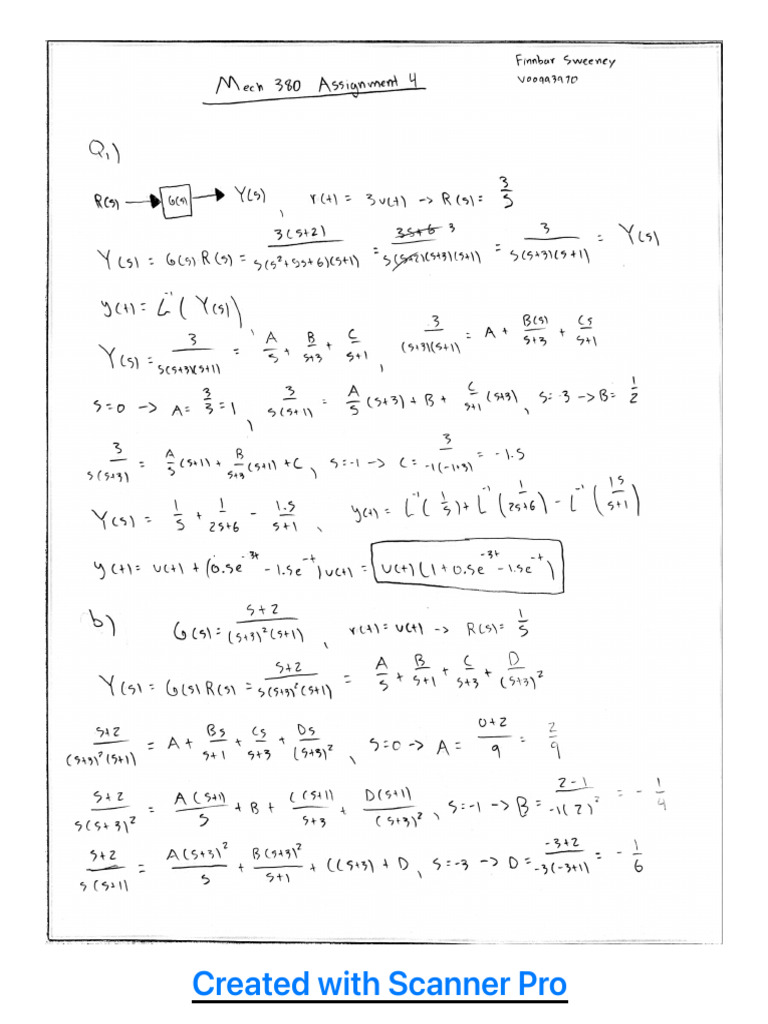 Finnbar Sweeney
V00993970
Mech 380 Assignment 4
Q1)
R(s) → G(s) → Y(s) , r(t) = 3u(t) → R(s) = 3/s
Y(s) = G(s) R(s) = 3(s+2)/(s(s²+5s+6)(s+1)) = 3s+6 3/(s(s+2)(s+3)(s+1)) = 3/(s(s+3)(s+1)) = Y(s)
y(t) = L⁻¹(Y(s)) ,
Y(s) = 3/(s(s+3)(s+1)) = A/s + B/(s+3) + C/(s+1) , 3/((s+3)(s+1)) = A + B(s)/(s+3) + Cs/(s+1)
s=0 → A = 3/3 = 1 , 3/(s(s+1)) = A/s (s+3) + B + C/(s+1) (s+3) , s=-3 → B = 1/2
3/(s(s+3)) = A/s (s+1) + B/(s+3) (s+1) + C , s=-1 → C = 3/(-1(-1+3)) = -1.5
Y(s) = 1/s + 1/(2s+6) - 1.5/(s+1) , y(t) = L⁻¹(1/s) + L⁻¹(1/(2s+6)) - L⁻¹(1.5/(s+1))
y(t) = u(t) + (0.5e^-3t - 1.5e^-t)u(t) = u(t)(1 + 0.5e^-3t - 1.5e^-t)
b) G(s) = (s+2)/((s+3)²(s+1)) , r(t) = u(t) → R(s) = 1/s
Y(s) = G(s) R(s) = (s+2)/(s(s+3)²(s+1)) = A/s + B/(s+1) + C/(s+3) + D/(s+3)²
(s+2)/((s+3)²(s+1)) = A + Bs/(s+1) + Cs/(s+3) + Ds/(s+3)² , s=0 → A = (0+2)/9 = 2/9
(s+2)/(s(s+3)²) = A(s+1)/s + B + C(s+1)/(s+3) + D(s+1)/(s+3)² , s=-1 → B = (2-1)/(-1(2)²) = -1/4
(s+2)/(s(s+1)) = A(s+3)²/s + B(s+3)²/(s+1) + C(s+3) + D , s=-3 → D = (-3+2)/(-3(-3+1)) = -1/6
Created with Scanner Pro